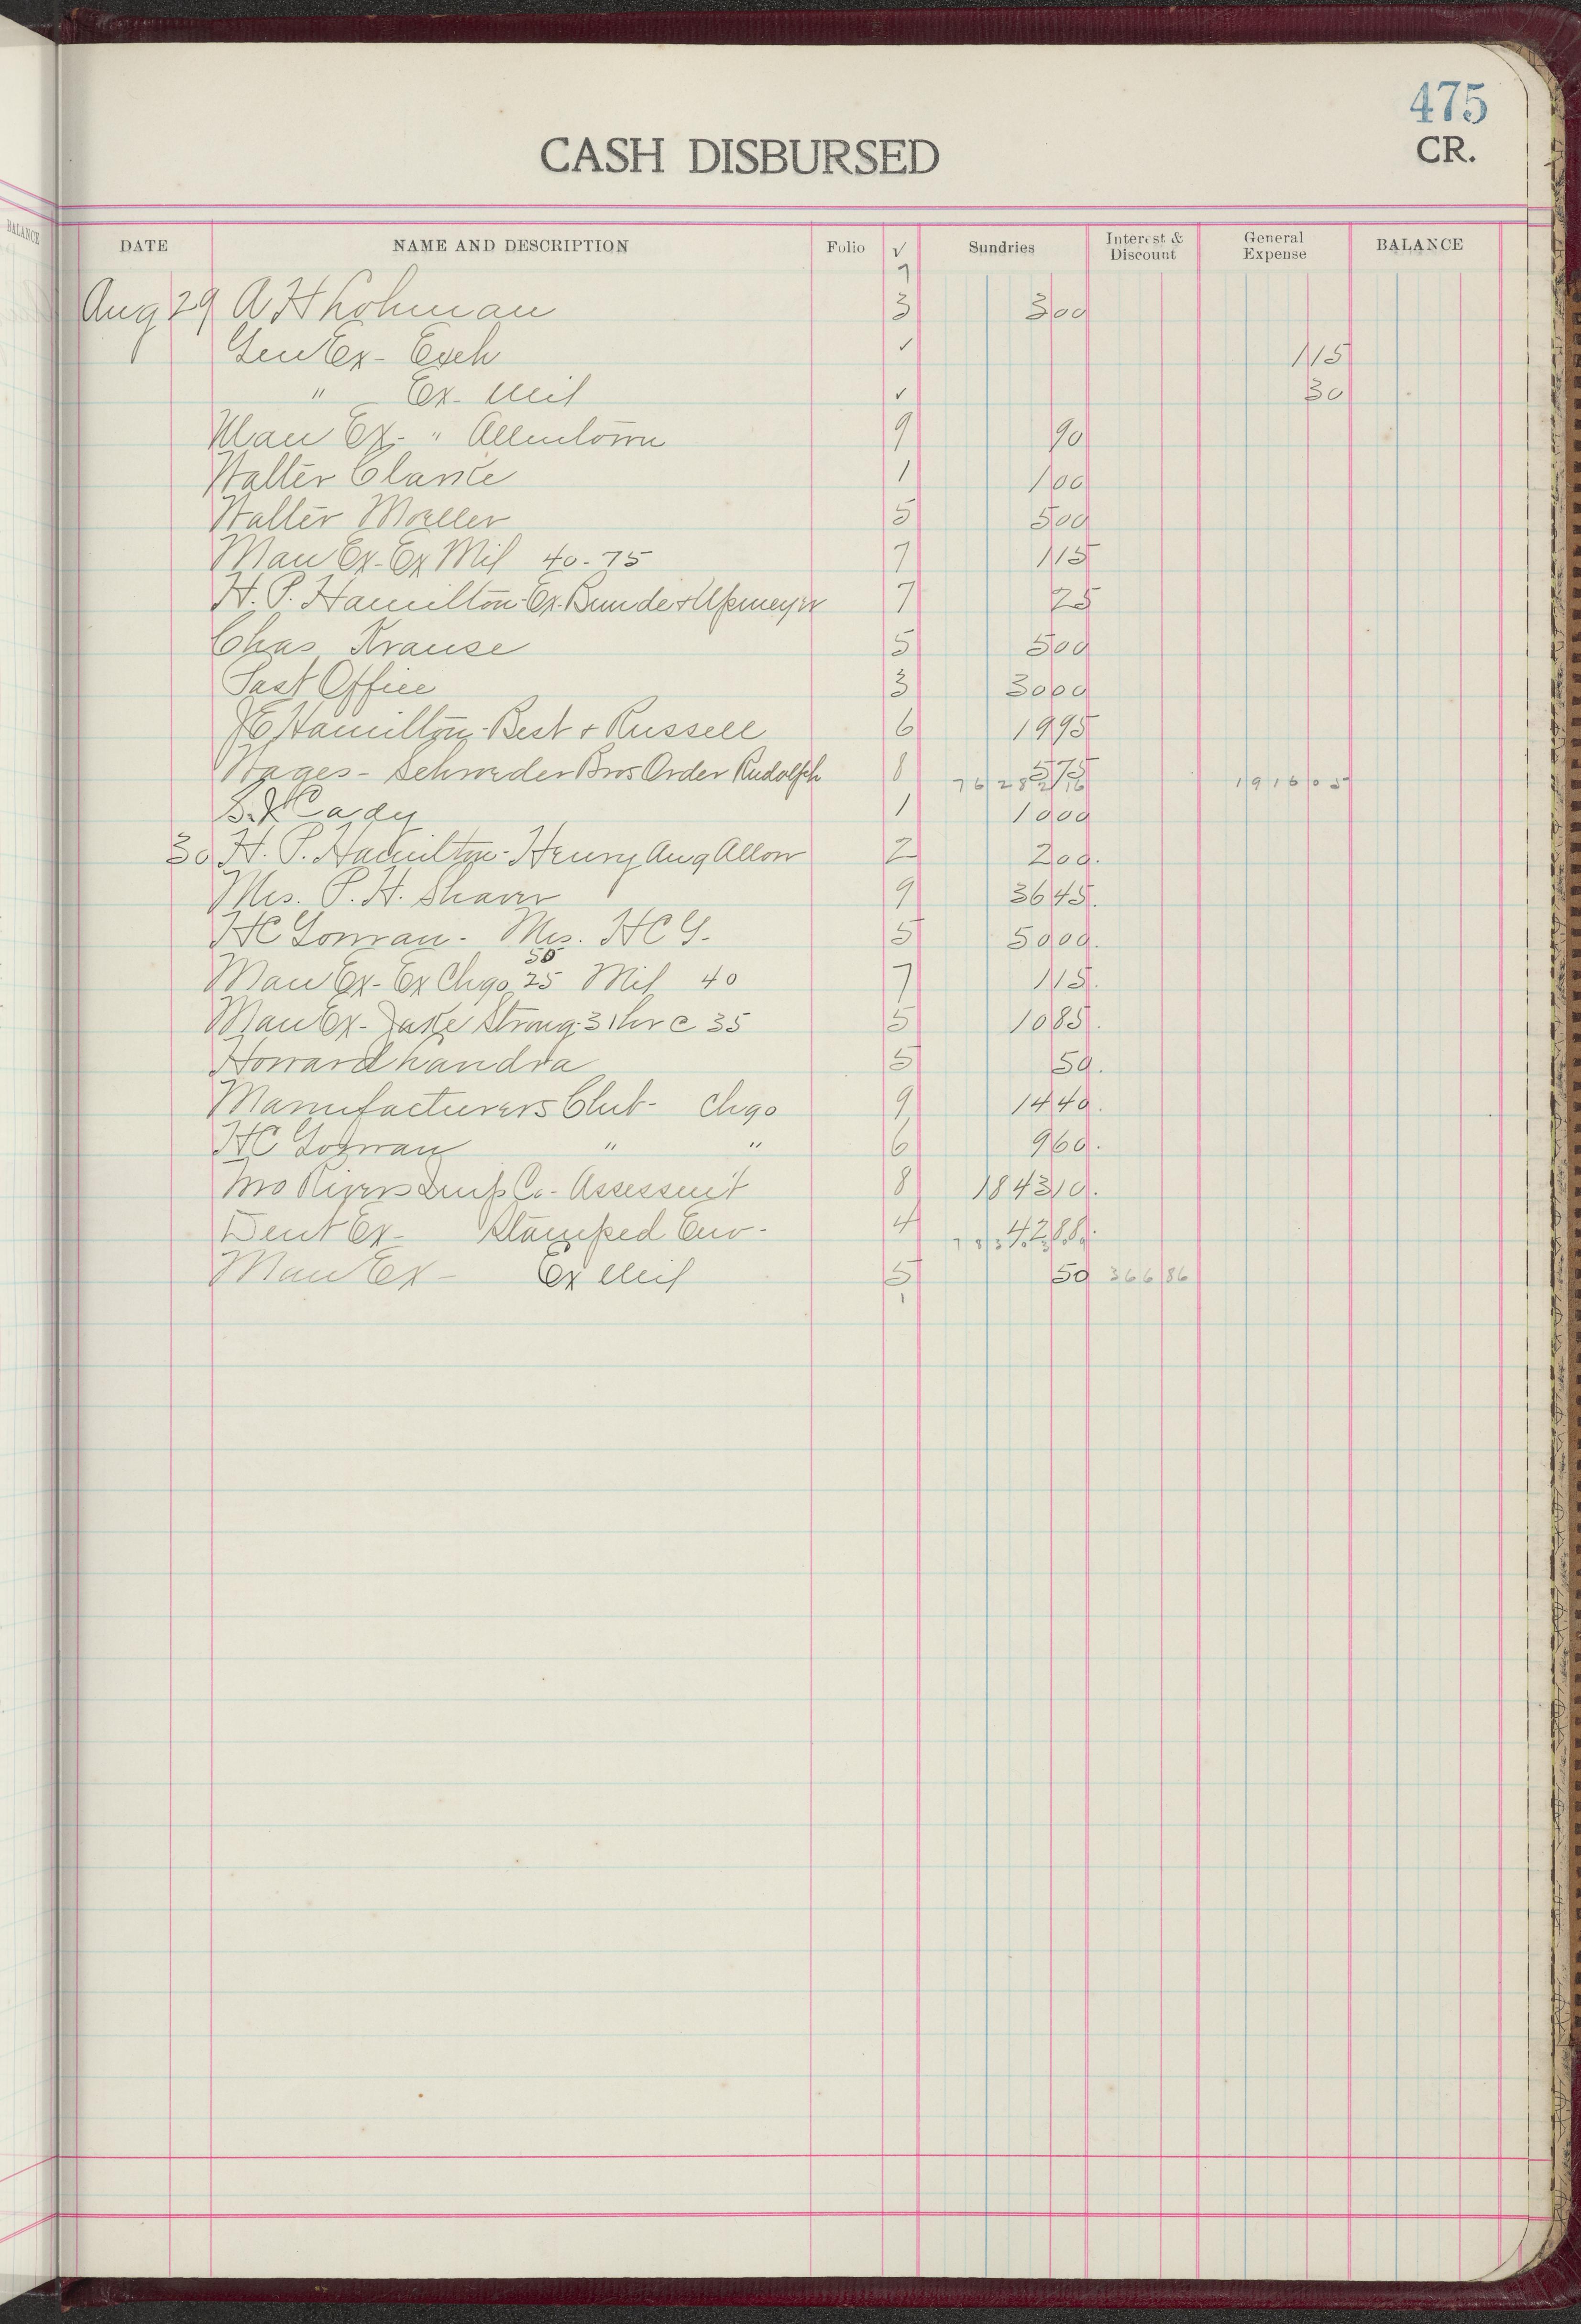 475
CASH DISBURSED CR.
BALANCE
DATE NAME AND DESCRIPTION Folio √ Sundries Interest & Discount General Expense BALANCE
7
Aug 29 A H Lohman 3 3 00
Gen Ex - Exch ✓ 1 15
" Ex - Mil ✓ 30
Man Ex - " Allentown 9 90
Walter Clarke 1 1 00
Walter Moeller 5 5 00
Man Ex - Ex Mil 40 - 75 7 1 15
H. P. Hamilton - Ex - Bunde & Upmeyer 7 25
Chas Krause 5 5 00
Post Office 3 30 00
J E Hamilton - Best & Russell 6 19 95
Wages - Schroeder Bros Order Rudolph 8 5 75
76 282 16 1916 05
Cady 1 10 00
30 H. P. Hamilton - Henry Aug Allow 2 2 00.
Mrs. P. H. Shaver 9 36 45.
H C Gowran - Mrs. H C G. 5 50 00.
50
Man Ex - Ex Chgo 25 Mil 40 7 1 15.
Man Ex - Jake Strong - 31 hr @ 35 5 10 85.
Howard Landra 5 50.
Manufacturers Club - Chgo 9 14 40.
H C Gowran " " 6 9 60.
Mo River Co - Assessm't 8 1843 10.
Dent Ex - Stamped Env - 4 42 88.
Man Ex - Ex Mil 5 50 366 86
1